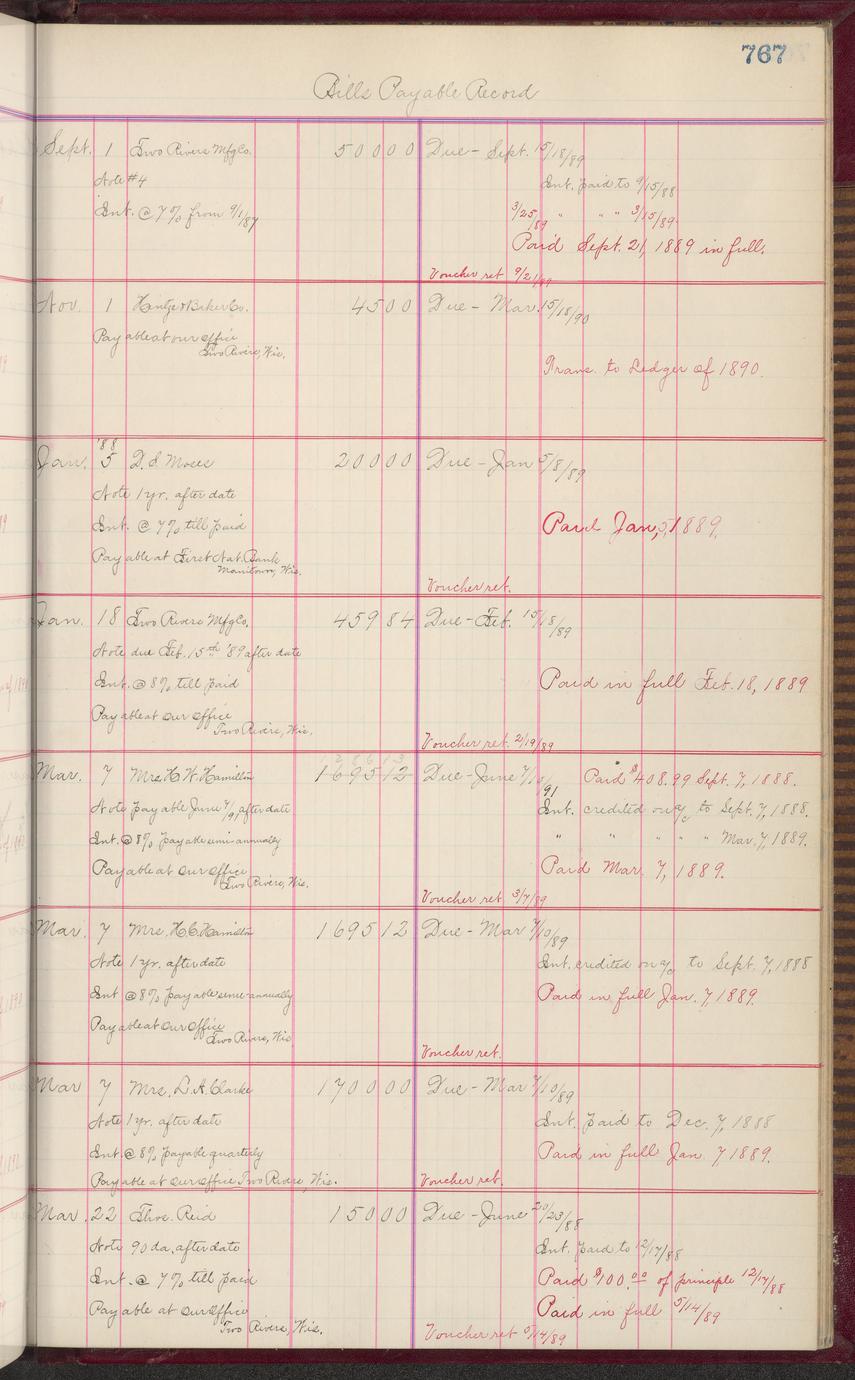 767
Bills Payable Record
Sept. 1 Two Rivers Mfg Co. 500 00 Due - Sept. 15/18/89
Note #4 Int. paid to 9/15/88
Int. @ 7% from 9/1/87 3/25/89 " " " 3/15/89
Paid Sept. 21, 1889 in full.
Voucher ret. 9/21/89
Nov. 1 45 00 Due - Mar. 15/18/90
Payable at our office
Two Rivers, Wis.
Trans. to Ledger of 1890.
'88
Jan. 5 D. S. Moses 200 00 Due - Jan 5/8/89
Note 1 yr. after date
Int. @ 7% till paid Paid Jan, 5, 1889.
Payable at First Nat. Bank
Manitowoc, Wis.
Voucher ret.
Jan. 18 Two Rivers Mfg Co. 459 84 Due - Feb. 15/18/89
Note due Feb. 15th '89 after date
Int. @ 8% till paid Paid in full Feb. 18, 1889
Payable at our office
Two Rivers, Wis.
Voucher ret. 2/19/89
2 8 6 1 3
Mar. 7 Mrs. H. W. Hamilton 1695 12 Due - June 7/10/91 Paid $408.99 Sept. 7, 1888.
Note payable June 7/91 after date Int. credited on a/c to Sept. 7, 1888.
Int. @ 8% payable semi-annually " " " " " Mar. 7, 1889.
Payable at our office Paid Mar. 7, 1889.
Two Rivers, Wis.
Voucher ret. 3/7/89
Mar. 7 Mrs. H. C. Hamilton 1695 12 Due - Mar 7/10/89
Note 1 yr. after date Int. credited on a/c to Sept. 7, 1888
Int @ 8% payable semi-annually Paid in full Jan. 7, 1889.
Payable at our office
Two Rivers, Wis
Voucher ret.
Mar 7 Mrs. L. A. Clarke 1700 00 Due - Mar 7/10/89
Note 1 yr. after date Int. paid to Dec. 7, 1888
Int. @ 8% payable quarterly Paid in full Jan. 7, 1889.
Payable at our office Two Rivers, Wis. Voucher ret.
Mar. 22 Thos. Reid 150 00 Due - June 20/23/88
Note 90 da. after date Int. paid to 12/17/88
Int. @ 7% till paid Paid $100.00 of principle 12/17/88
Payable at our office Paid in full 5/14/89
Two Rivers, Wis.
Voucher ret 5/14/89